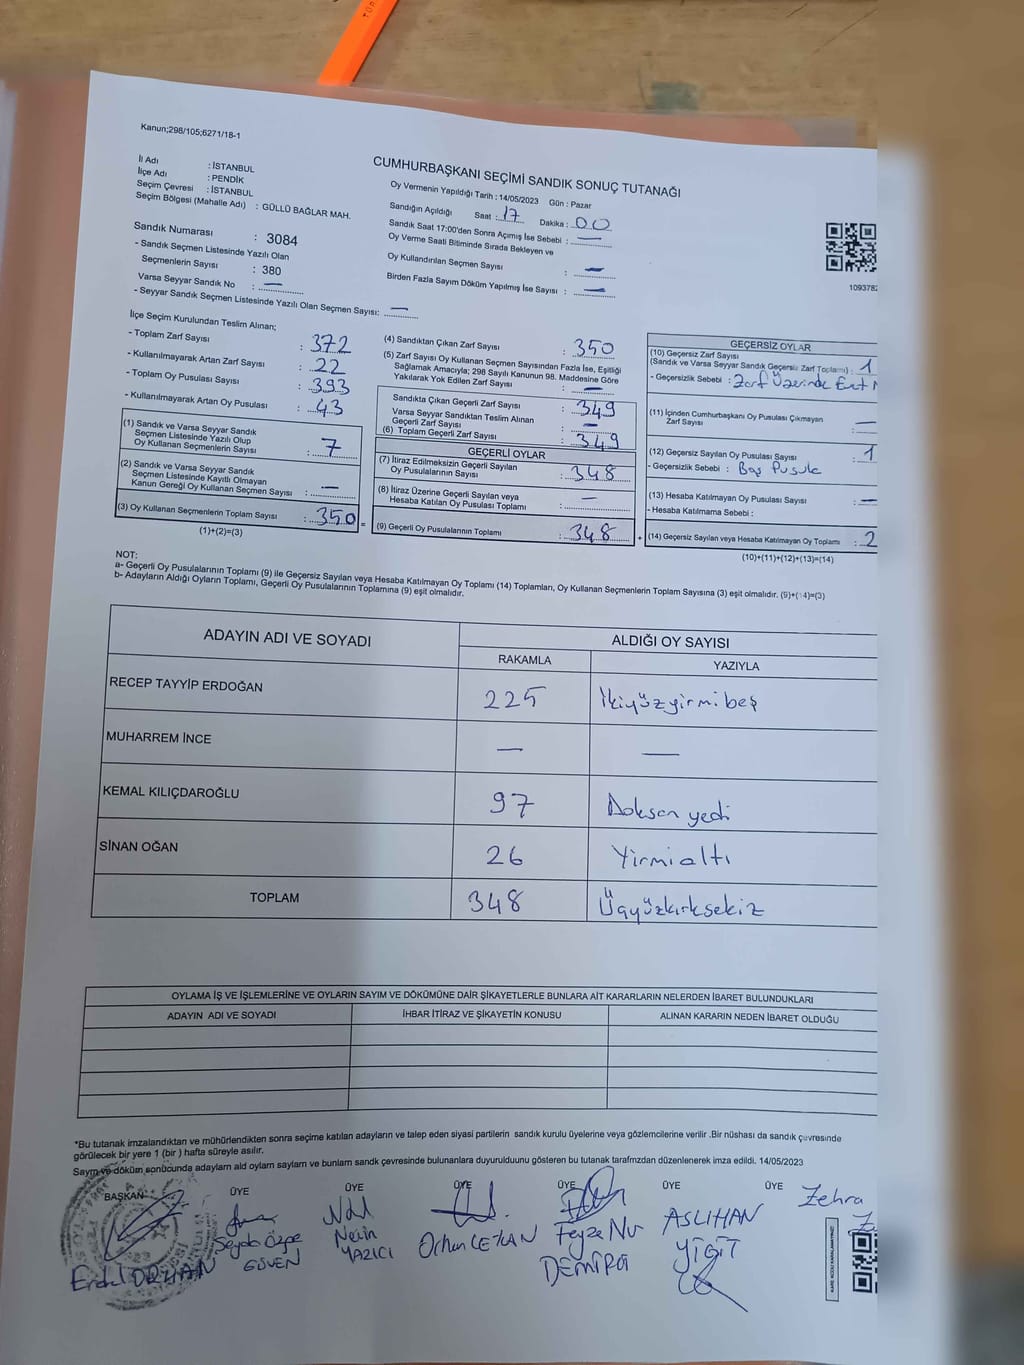 TÜR
Kanun;298/105;6271/18-1
CUMHURBAŞKANI SEÇİMİ SANDIK SONUÇ TUTANAĞI
İl Adı : İSTANBUL
İlçe Adı : PENDİK
Seçim Çevresi : İSTANBUL
Seçim Bölgesi (Mahalle Adı) : GÜLLÜ BAĞLAR MAH.
Oy Vermenin Yapıldığı Tarih : 14/05/2023 Gün : Pazar
Sandığın Açıldığı Saat : 17 Dakika : 00
Sandık Saat 17:00'den Sonra Açımış İse Sebebi : —
Oy Verme Saati Bitiminde Sırada Bekleyen ve
Oy Kullandırılan Seçmen Sayısı : —
Birden Fazla Sayım Döküm Yapılmış İse Sayısı : —
1093782
Sandık Numarası : 3084
- Sandık Seçmen Listesinde Yazılı Olan
Seçmenlerin Sayısı : 380
Varsa Seyyar Sandık No : —
- Seyyar Sandık Seçmen Listesinde Yazılı Olan Seçmen Sayısı: —
İlçe Seçim Kurulundan Teslim Alınan;
- Toplam Zarf Sayısı : 372
- Kullanılmayarak Artan Zarf Sayısı : 22
- Toplam Oy Pusulası Sayısı : 393
- Kullanılmayarak Artan Oy Pusulası : 43
(1) Sandık ve Varsa Seyyar Sandık
Seçmen Listesinde Yazılı Olup
Oy Kullanan Seçmenlerin Sayısı : 7
(2) Sandık ve Varsa Seyyar Sandık
Seçmen Listesinde Kayıtlı Olmayan
Kanun Gereği Oy Kullanan Seçmen Sayısı : —
(3) Oy Kullanan Seçmenlerin Toplam Sayısı : 350 =
(1)+(2)=(3)
(4) Sandıktan Çıkan Zarf Sayısı : 350
(5) Zarf Sayısı Oy Kullanan Seçmen Sayısından Fazla İse, Eşitliği
Sağlamak Amacıyla; 298 Sayılı Kanunun 98. Maddesine Göre
Yakılarak Yok Edilen Zarf Sayısı : —
Sandıkta Çıkan Geçerli Zarf Sayısı : 349
Varsa Seyyar Sandıktan Teslim Alınan
Geçerli Zarf Sayısı : —
(6) Toplam Geçerli Zarf Sayısı : 349
GEÇERLİ OYLAR
(7) İtiraz Edilmeksizin Geçerli Sayılan
Oy Pusulasının Sayısı : 348
(8) İtiraz Üzerine Geçerli Sayılan veya
Hesaba Katılan Oy Pusulası Toplamı : —
(9) Geçerli Oy Pusulalarının Toplamı : 348 +
GEÇERSİZ OYLAR
(10) Geçersiz Zarf Sayısı
(Sandık ve Varsa Seyyar Sandık Geçersiz Zarf Toplamı) : 1
- Geçersizlik Sebebi : Zarf Üzerinde Evet
(11) İçinden Cumhurbaşkanı Oy Pusulası Çıkmayan
Zarf Sayısı : —
(12) Geçersiz Sayılan Oy Pusulası Sayısı : 1
- Geçersizlik Sebebi : Boş Pusula
(13) Hesaba Katılmayan Oy Pusulası Sayısı : —
- Hesaba Katılmama Sebebi :
(14) Geçersiz Sayılan veya Hesaba Katılmayan Oy Toplamı : 2
(10)+(11)+(12)+(13)=(14)
NOT:
a- Geçerli Oy Pusulalarının Toplamı (9) ile Geçersiz Sayılan veya Hesaba Katılmayan Oy Toplamı (14) Toplamları, Oy Kullanan Seçmenlerin Toplam Sayısına (3) eşit olmalıdır. (9)+(14)=(3)
b- Adayların Aldığı Oyların Toplamı, Geçerli Oy Pusulalarının Toplamına (9) eşit olmalıdır.
ADAYIN ADI VE SOYADI ALDIĞI OY SAYISI
RAKAMLA YAZIYLA
RECEP TAYYİP ERDOĞAN 225 İkiyüzyirmibeş
MUHARREM İNCE — —
KEMAL KILIÇDAROĞLU 97 Doksan yedi
SİNAN OĞAN 26 Yirmialtı
TOPLAM 348 Üçyüzkırksekiz
OYLAMA İŞ VE İŞLEMLERİNE VE OYLARIN SAYIM VE DÖKÜMÜNE DAİR ŞİKAYETLERLE BUNLARA AİT KARARLARIN NELERDEN İBARET BULUNDUKLARI
ADAYIN ADI VE SOYADI İHBAR İTİRAZ VE ŞİKAYETİN KONUSU ALINAN KARARIN NEDEN İBARET OLDUĞU
*Bu tutanak imzalandıktan ve mühürlendikten sonra seçime katılan adayların ve talep eden siyasi partilerin sandık kurulu üyelerine veya gözlemcilerine verilir .Bir nüshası da sandık çevresinde
görülecek bir yere 1 (bir ) hafta süreyle asılır.
Sayım ve döküm sonucunda adayların ald oyların sayları ve bunların sandk çevresinde bulunanlara duyurulduunu gösteren bu tutanak tarafmzdan düzenlenerek imza edildi. 14/05/2023
BAŞKAN ÜYE ÜYE ÜYE ÜYE ÜYE ÜYE
Erdal ORHAN
Seyda Özge GÜVEN
Necin YAZICI
Orhan CEYLAN
Feyza Nur DEMİRCİ
ASLIHAN YİĞİT
Zehra